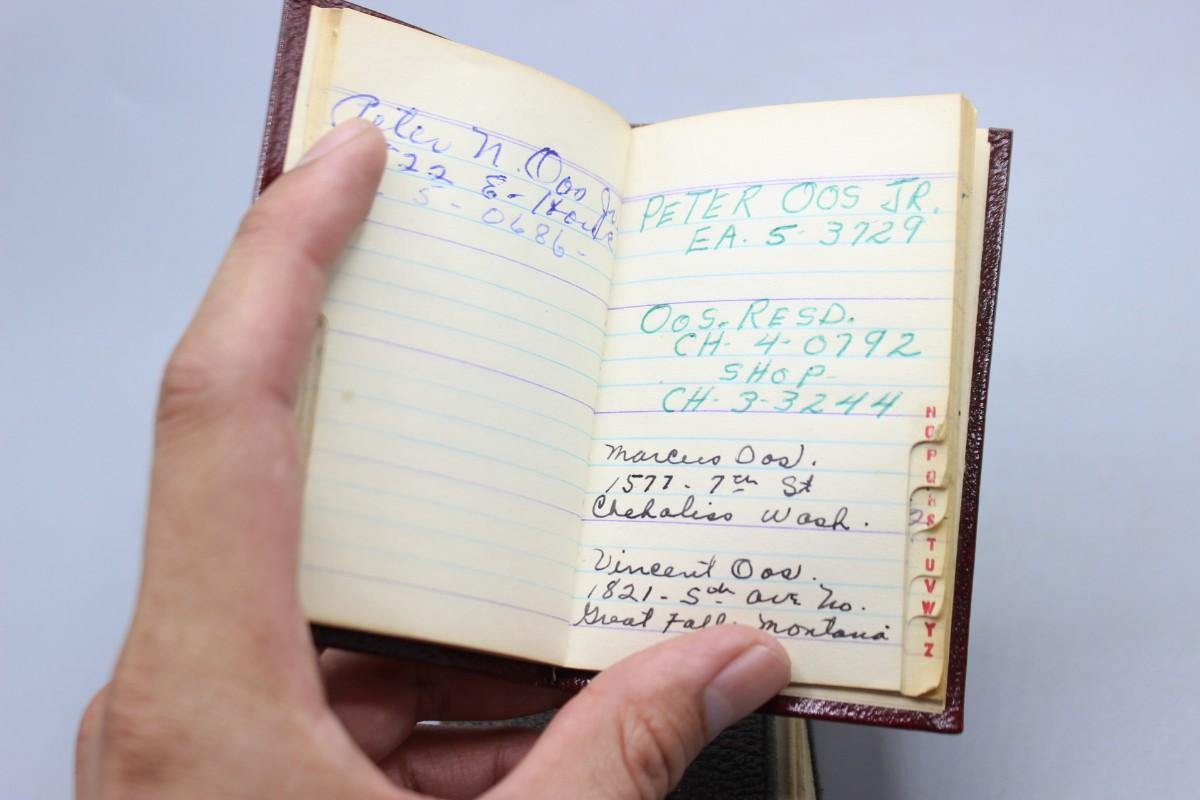 Peter N. Oos Jr
22 E.
5-0686-
PETER OOS JR.
EA. 5-3729
OOS. RESD.
CH-4-0792
SHOP-
CH-3-3244
Marcus Oos.
1577-7th St
Chehaliss Wash.
Vincent Oos.
1821-5th Ave No.
Great Falls Montana
N
O
P
Q
R
S
T
U
V
W
Y
Z